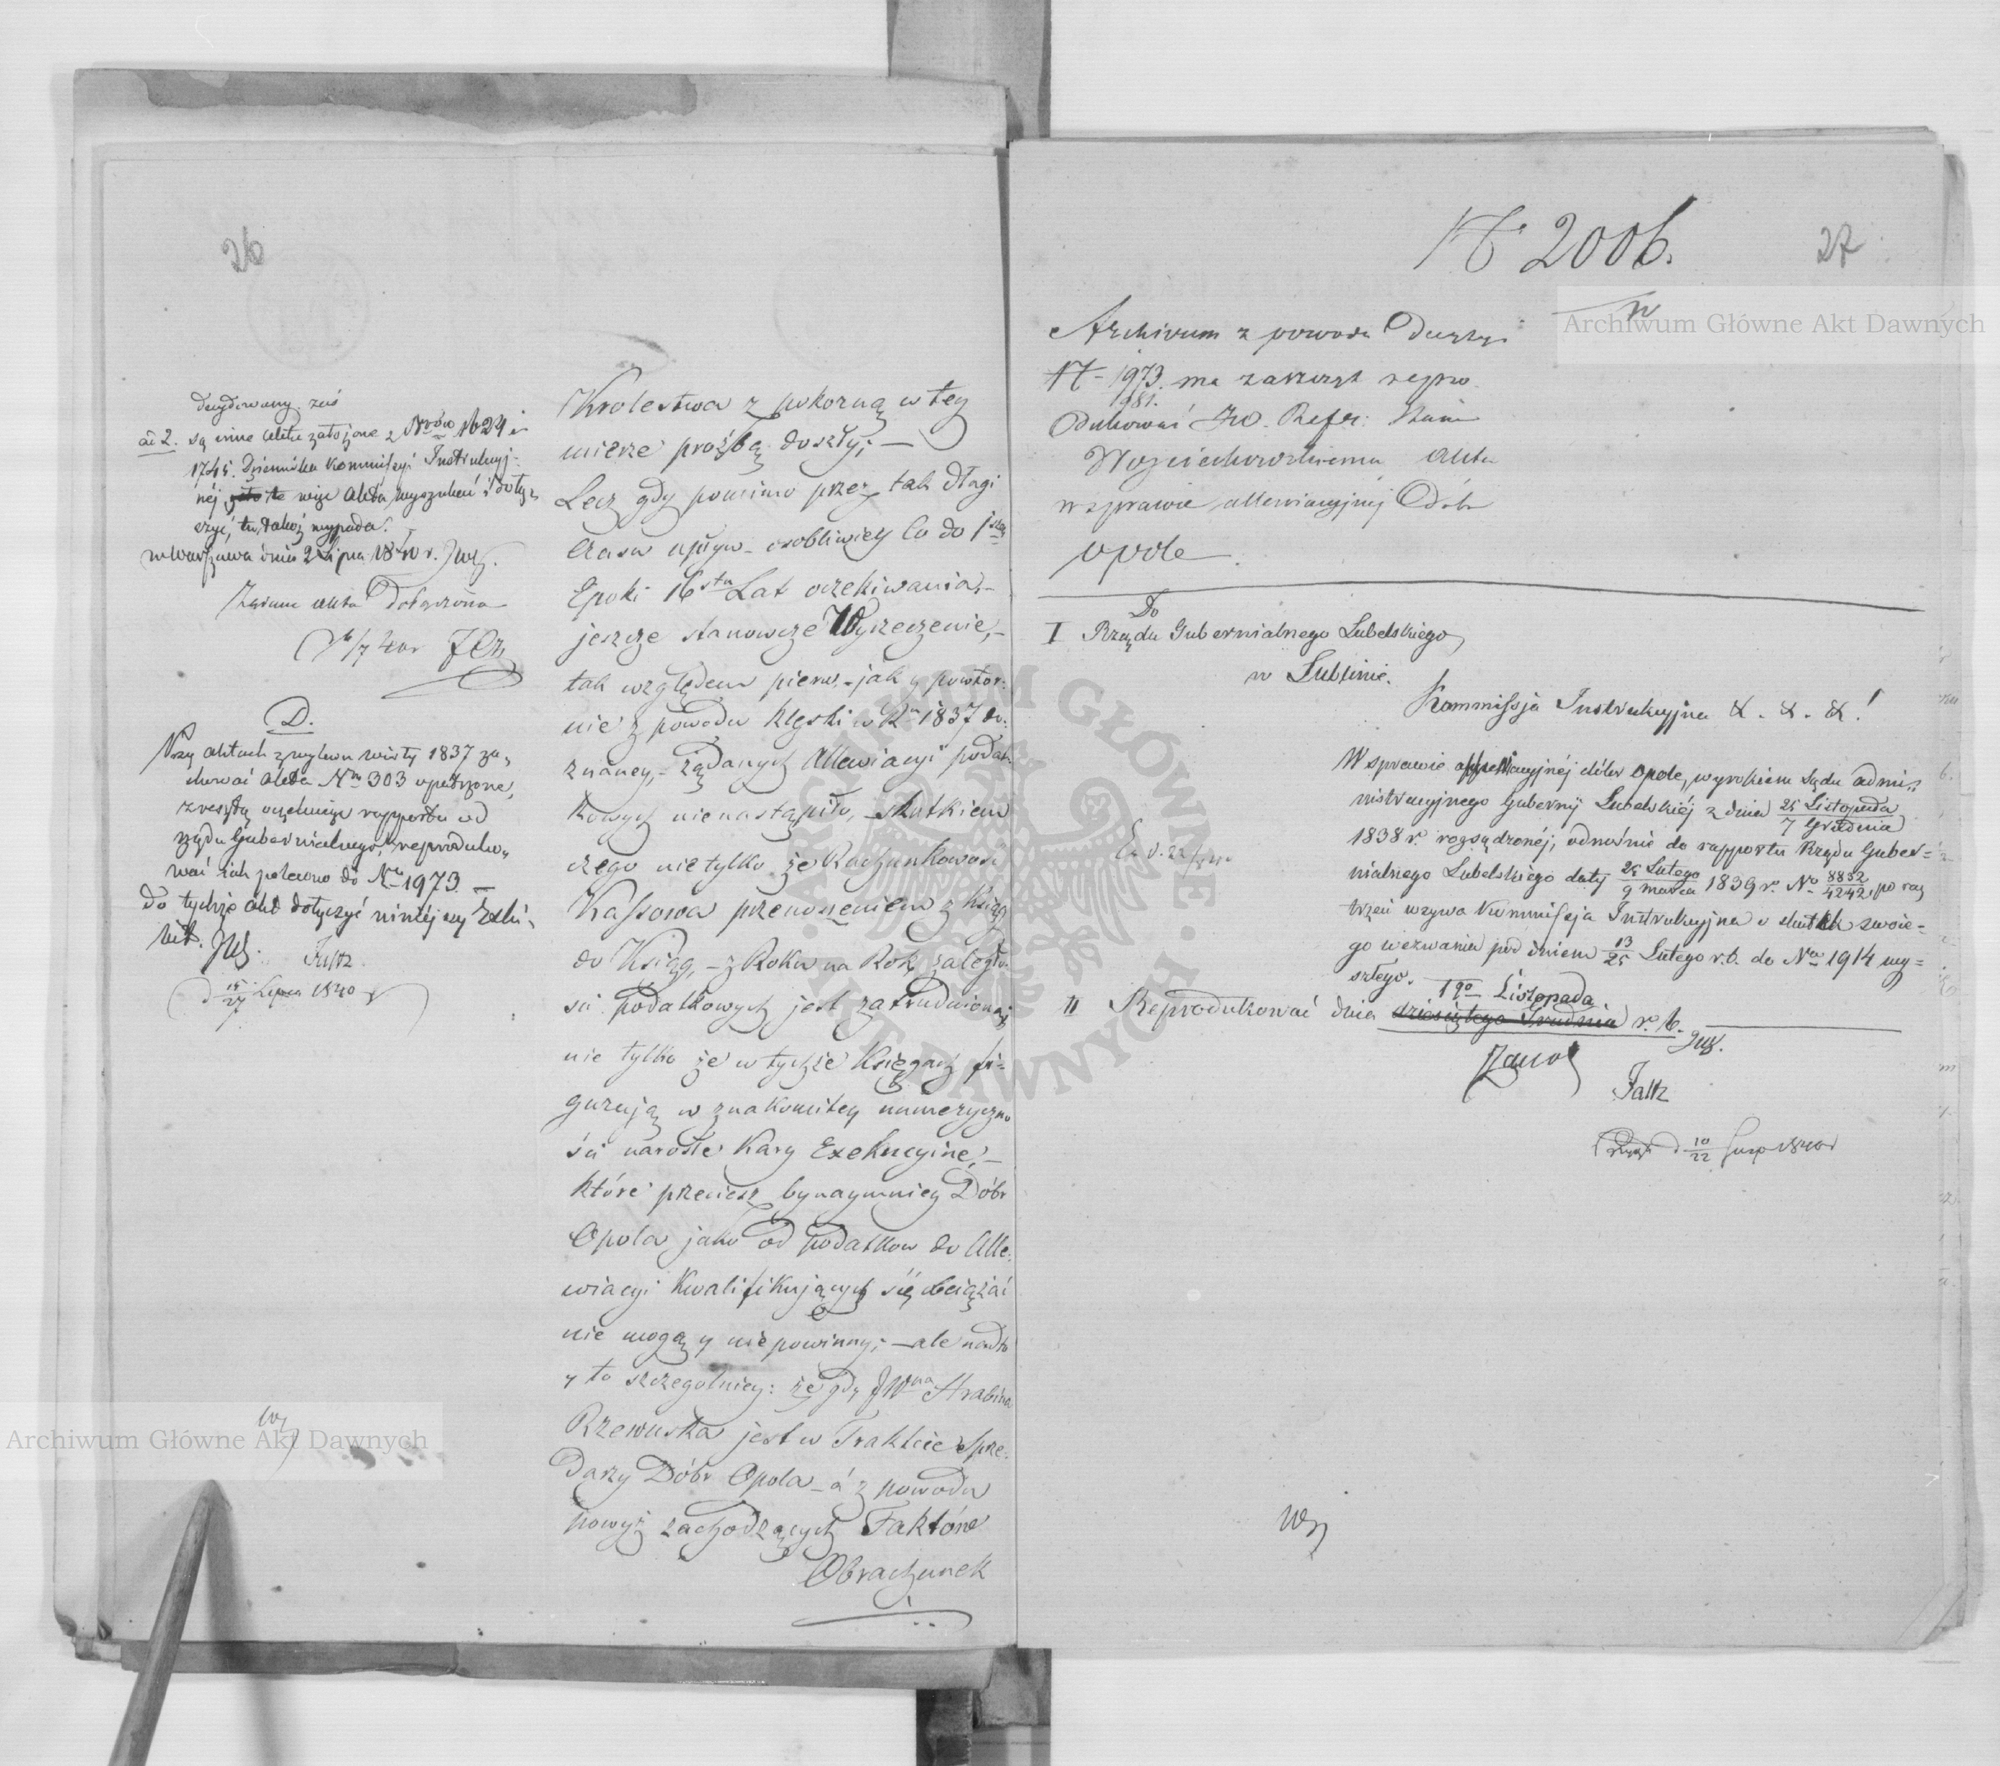 26
decydowany zaś
ad 2. są inne akta założone z Nrów 1624 i
1745. Dziennika Kommissyi Instrukcyj-
néj, więc akta wyszukać i dołą-
czyć, tu takoż wypada.
w Warszawie dnia 2 Lipca 1840 r.
Żądane akta Dołączono
D.
Przy aktach z wpływu
1837 za-
chować akta No 303 opatrzone,
zresztą oczekując rapportu od
rządu Gubernialnego, reproduko-
wać jak polecono do Nru 1973. —
do tychże akt dołączyć niniéjszy Exhi-
bit.
Faltz
d 15/27 Lipca 1840
Krolestwa z pokorną w tey
mierze proźbą doszły; —
Lecz gdy pomimo przez tak długi
Czasu upływ – osobliwiey Co do 1szey
Epoki 16stu Lat oczekiwania, –
jeszcze stanowcze Wyrzeczenie, –
tak względem pierw – jak y powtór-
nie z powodu klęski w Ru 1837 do-
znaney, – żądanych Allewiacyi podat-
kowych nie nastąpiło, – skutkiem
czego nie tylko że Rachunkowość
Kassowa przenoszeniem z Ksiąg
do Ksiąg, – z Roku na Rok zaległo-
ści podatkowych jest zatrudnioną
nie tylko że w tychże Księgach fi-
gurują w znakomitey numeryczno
ści narosłe Kary Exekucyine, –
które przeciesz bynaymniey Dóbr
Opola jako od podatkow do Alle-
wiacyi Kwalifikujących się obciążać
nie mogą y nie powinny; – ale nadto
y to szczegolniey: że gdy JWna Hrabina
Rzewuska jest w Trakcie Sprze-
daży Dóbr Opola – á z powodu
powyż zachodzących Faktów
Obrachunek
No 2006.
27
Archivum z powodu Decyzyi
No 1973. ma zaraz repro-
1981.
dukować JW. Refer: Stanu
Woyciechowskiemu Akta
w sprawie allewiacyjnéj Dóbr
Opole
Do
I Rządu Gubernialnego Lubelskiego
w Lublinie.
Kommissja Instrukcyjna &. &. &.!
W sprawie allewiacyjnéj dóbr Opole, wyrokiem Sądu admi-
nistracyjnego Gubernij Lubelskiéj z dnia 25 Listopada / 7 Grudnia
1838 r. rozsądzonéj, odnośnie do rapportu Rządu Guber-
nialnego Lubelskiego daty 25 Lutego / 9 marca 1839 r. No 8852/4242, po raz
trzeci wzywa Kommissja Instrukcyjna o skutek swoie-
go wezwania pod dniem 13/25 Lutego r. b. do Nru 1914 wy-
szłego.
1go Listopada
II Reprodukować dnia dziesiątego Grudnia r. b.
Faltz
d 10/22 1840
Archiwum Główne Akt Dawnych
Archiwum Główne Akt Dawnych
ARCHIWUM GŁÓWNE AKT DAWNYCH